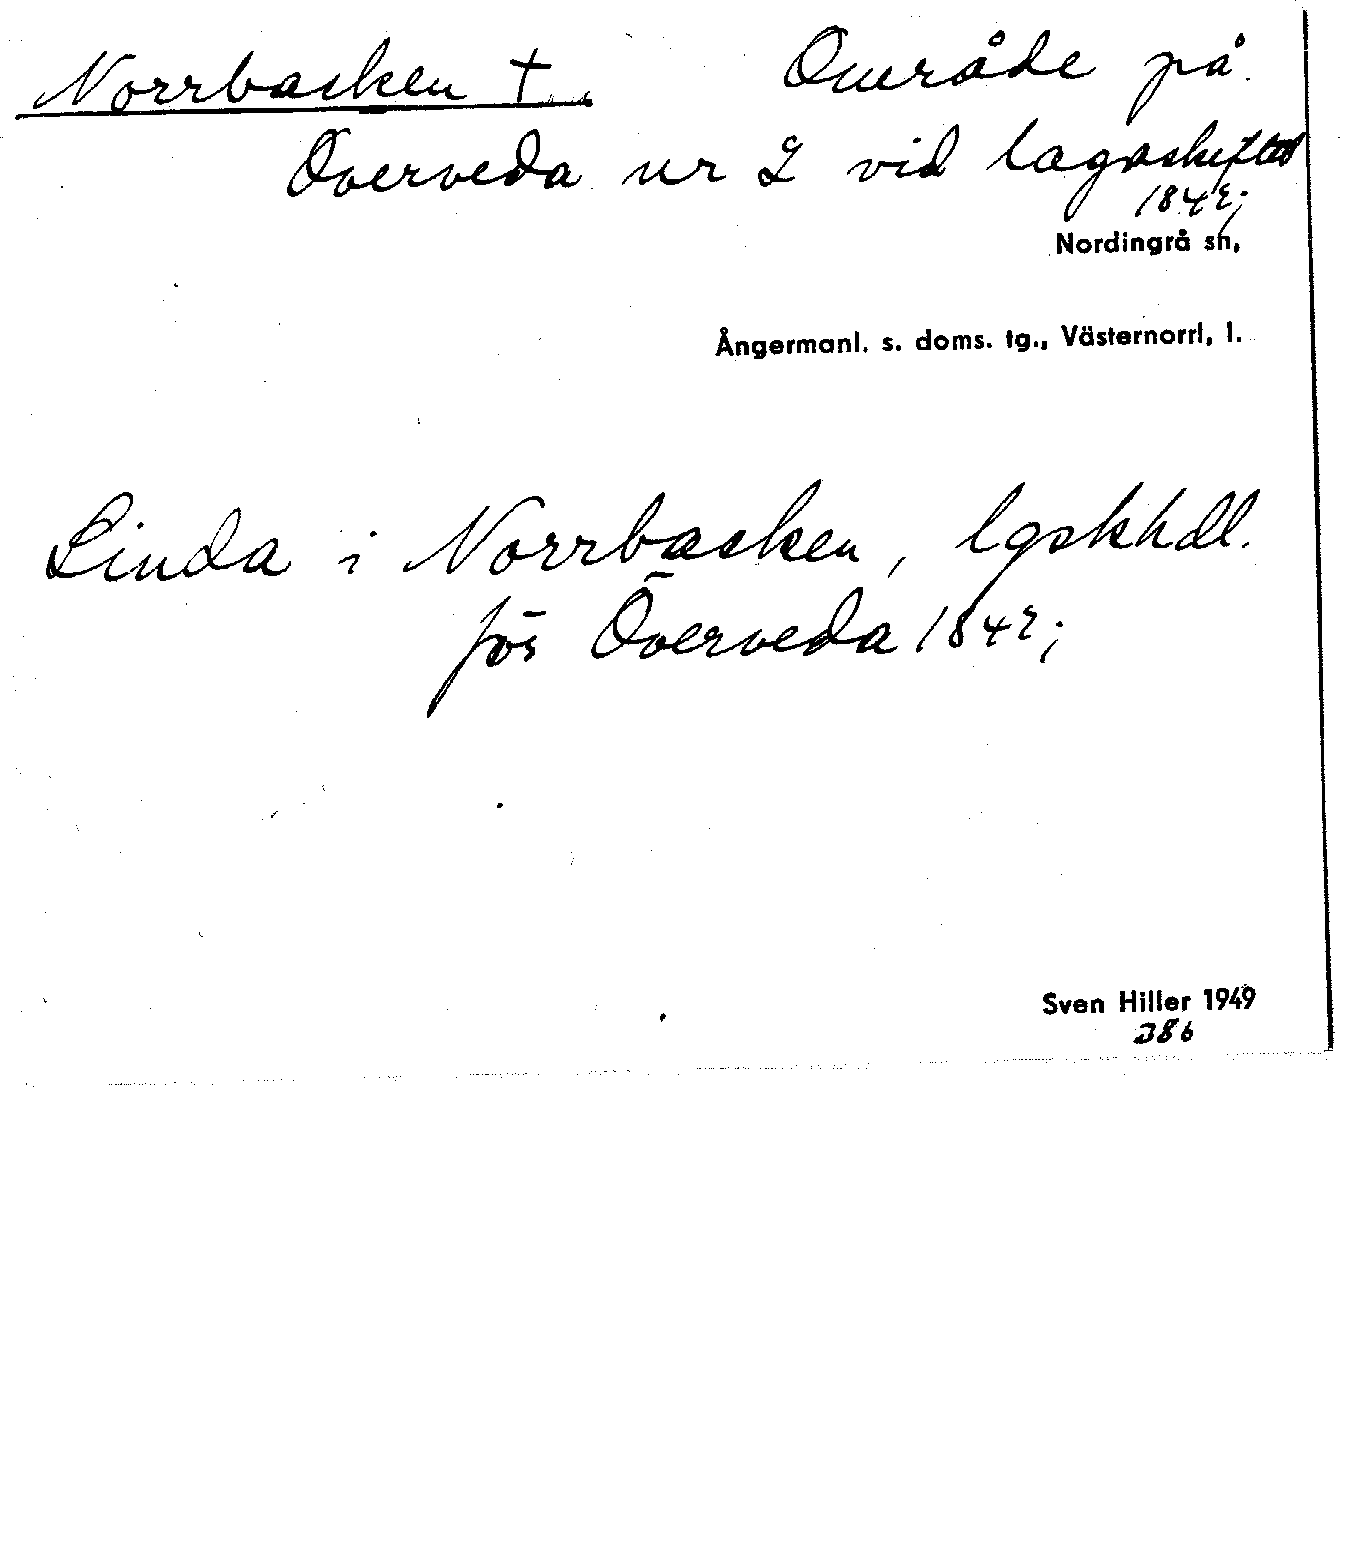 Norrbasken † Område på
Överveda nr 2 vid lagaskiftet
1842;
Nordingrå sn,
Ångermanl. s. doms. tg., Västernorrl, l.
Linda i Norrbasken, lgskhdl.
för Överveda 1842;
Sven Hiller 1949
386